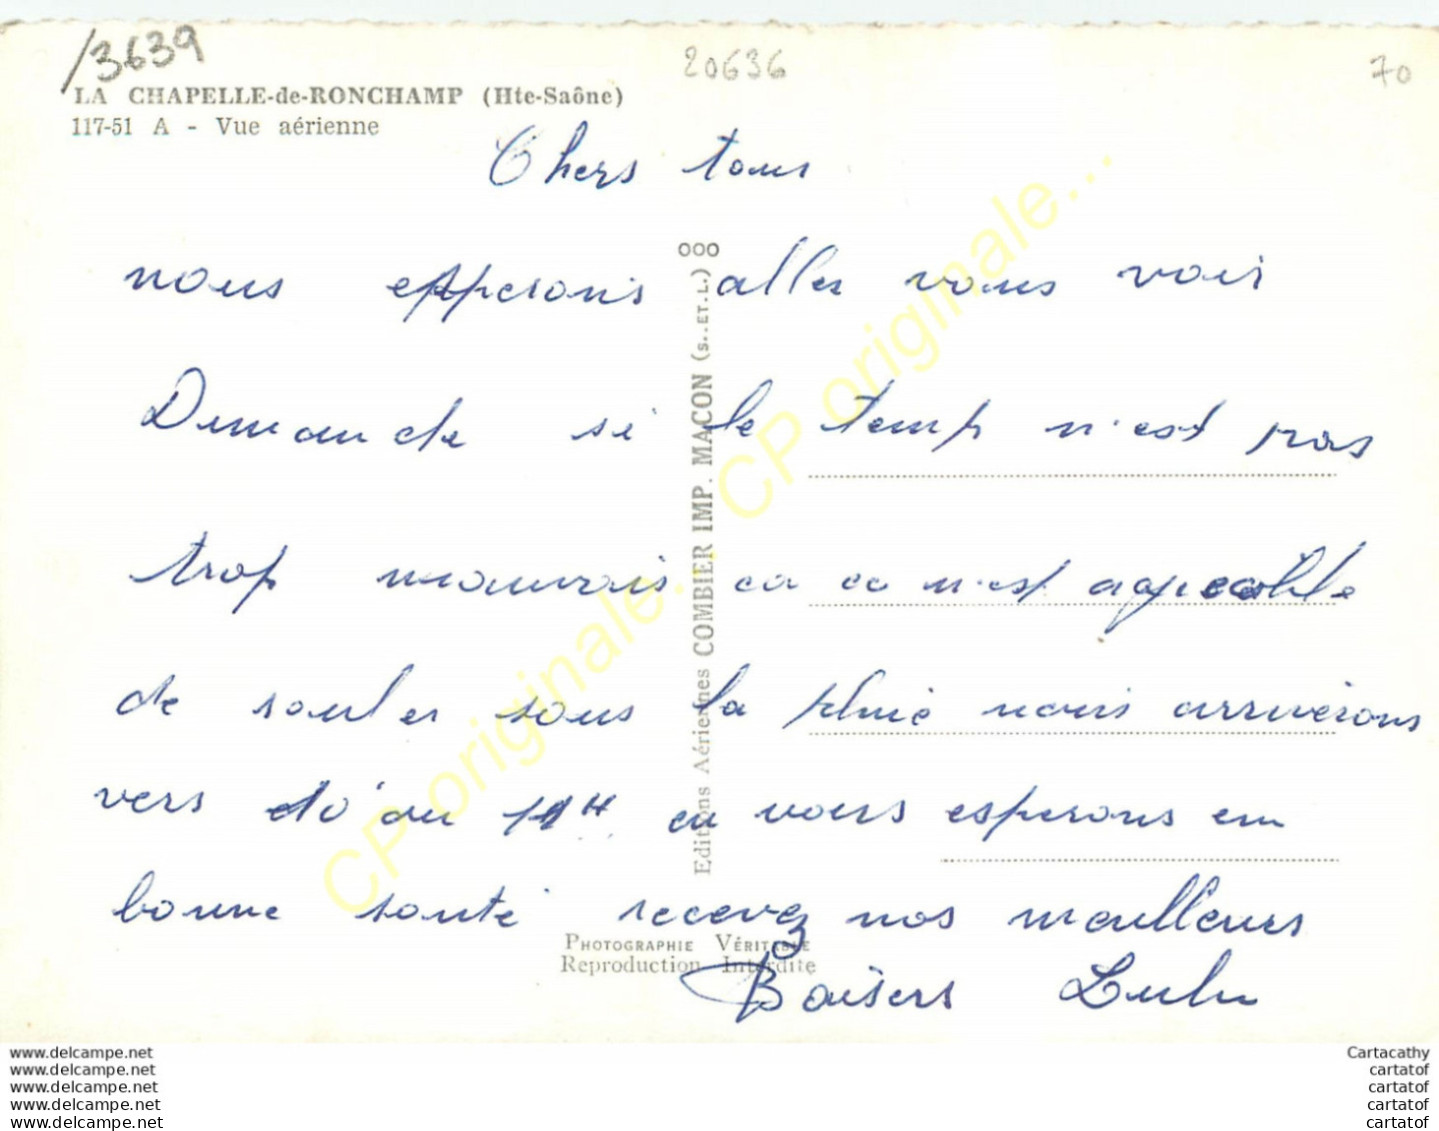 /3639
20636
70
LA CHAPELLE-de-RONCHAMP (Hte-Saône)
117-51 A - Vue aérienne
Chers tous
nous epperons aller vous voir
Dimanche si le temp n'est pas
trop mauvais ca ce n'est agreable
de rouler sous la pluie nous arriverons
vers 10 au 11H en vous esperons en
bonne santé recevez nos meulleurs
Baisers Lulu
OOO
Editions Aériennes COMBIER IMP. MACON (S..ET.L.)
PHOTOGRAPHIE VÉRITABLE
Reproduction Interdite
CP originale...
CP originale...
www.delcampe.net
www.delcampe.net
www.delcampe.net
www.delcampe.net
www.delcampe.net
Cartacathy
cartatof
cartatof
cartatof
cartatof